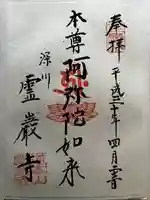 奉拝
平成三十年四月二日
本尊阿弥陀如来
深川
霊巌寺